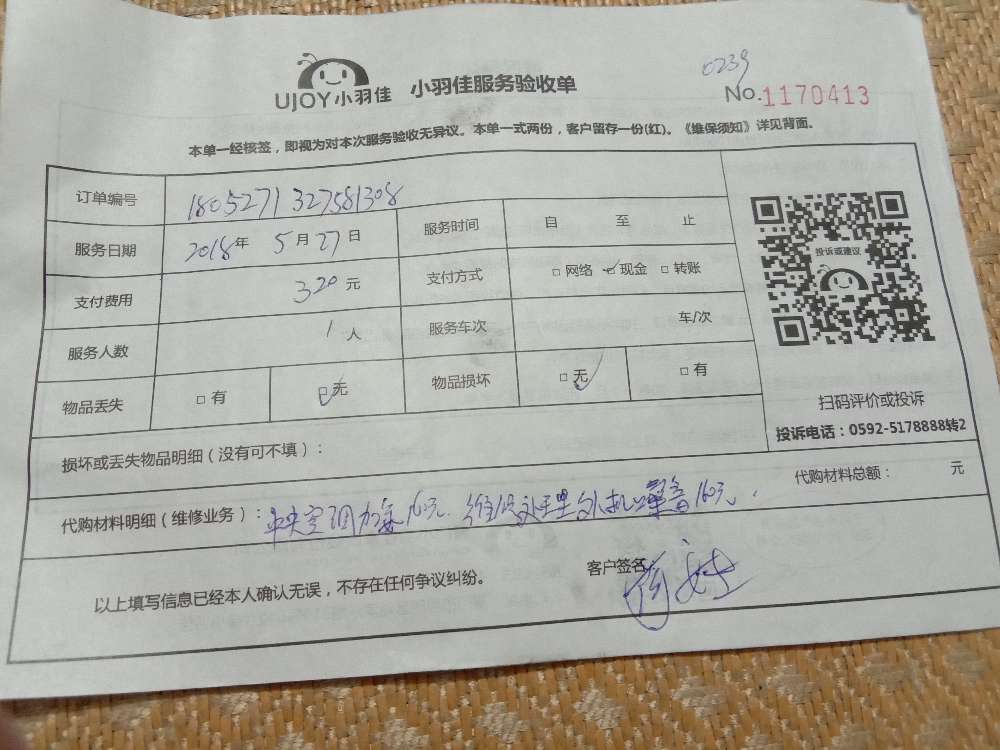 0239
UJOY小羽佳 小羽佳服务验收单 No.1170413
本单一经核签，即视为对本次服务验收无异议。本单一式两份，客户留存一份(红)。《维保须知》详见背面。
订单编号 1805271327581308
服务日期 2018年 5月27日 服务时间 自 至 止
支付费用 320元 支付方式 □网络 ☑现金 □转账
服务人数 1人 服务车次 车/次
物品丢失 □有 ☑无 物品损坏 ☑无 □有
投诉或建议
扫码评价或投诉
投诉电话：0592-5178888转2
损坏或丢失物品明细（没有可不填）：
代购材料总额： 元
代购材料明细（维修业务）：中央空调加氟160元、维修处理外机噪音160元.
以上填写信息已经本人确认无误，不存在任何争议纠纷。 客户签名